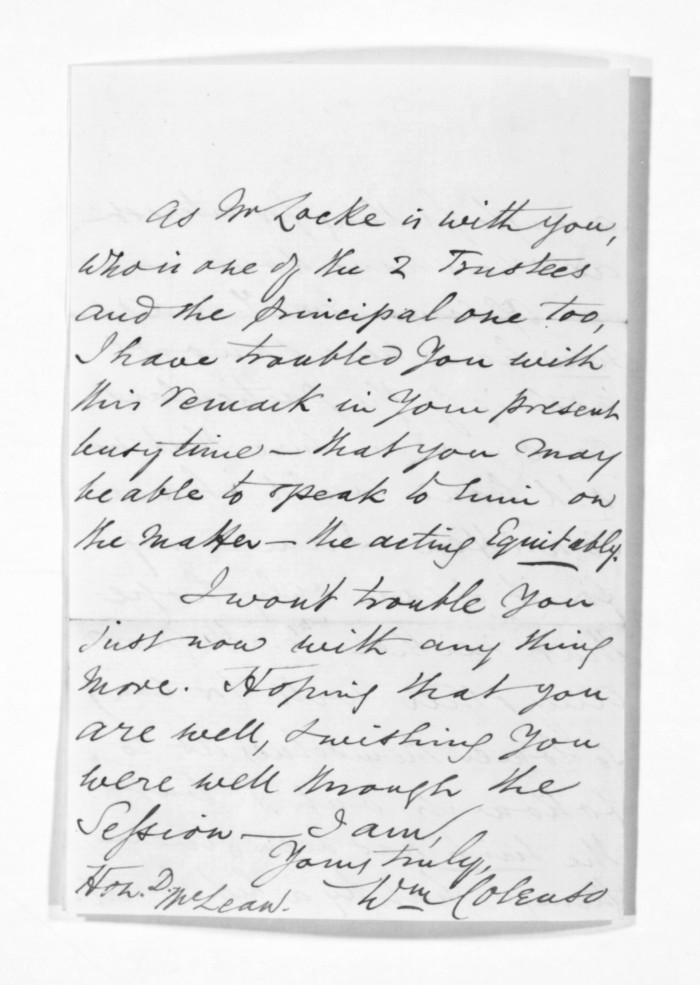 As Mr Locke is with you,
who is one of the 2 Trustees
and the principal one too,
I have troubled You with
this remark in Your present
busy time – that you may
be able to speak to him on
the matter – the acting Equitably.
I won't trouble You
just now with any thing
more. Hoping that you
are well, & wishing You
were well through the
Session – I am,
Yours truly,
Wm Colenso
Hon. D. McLean.